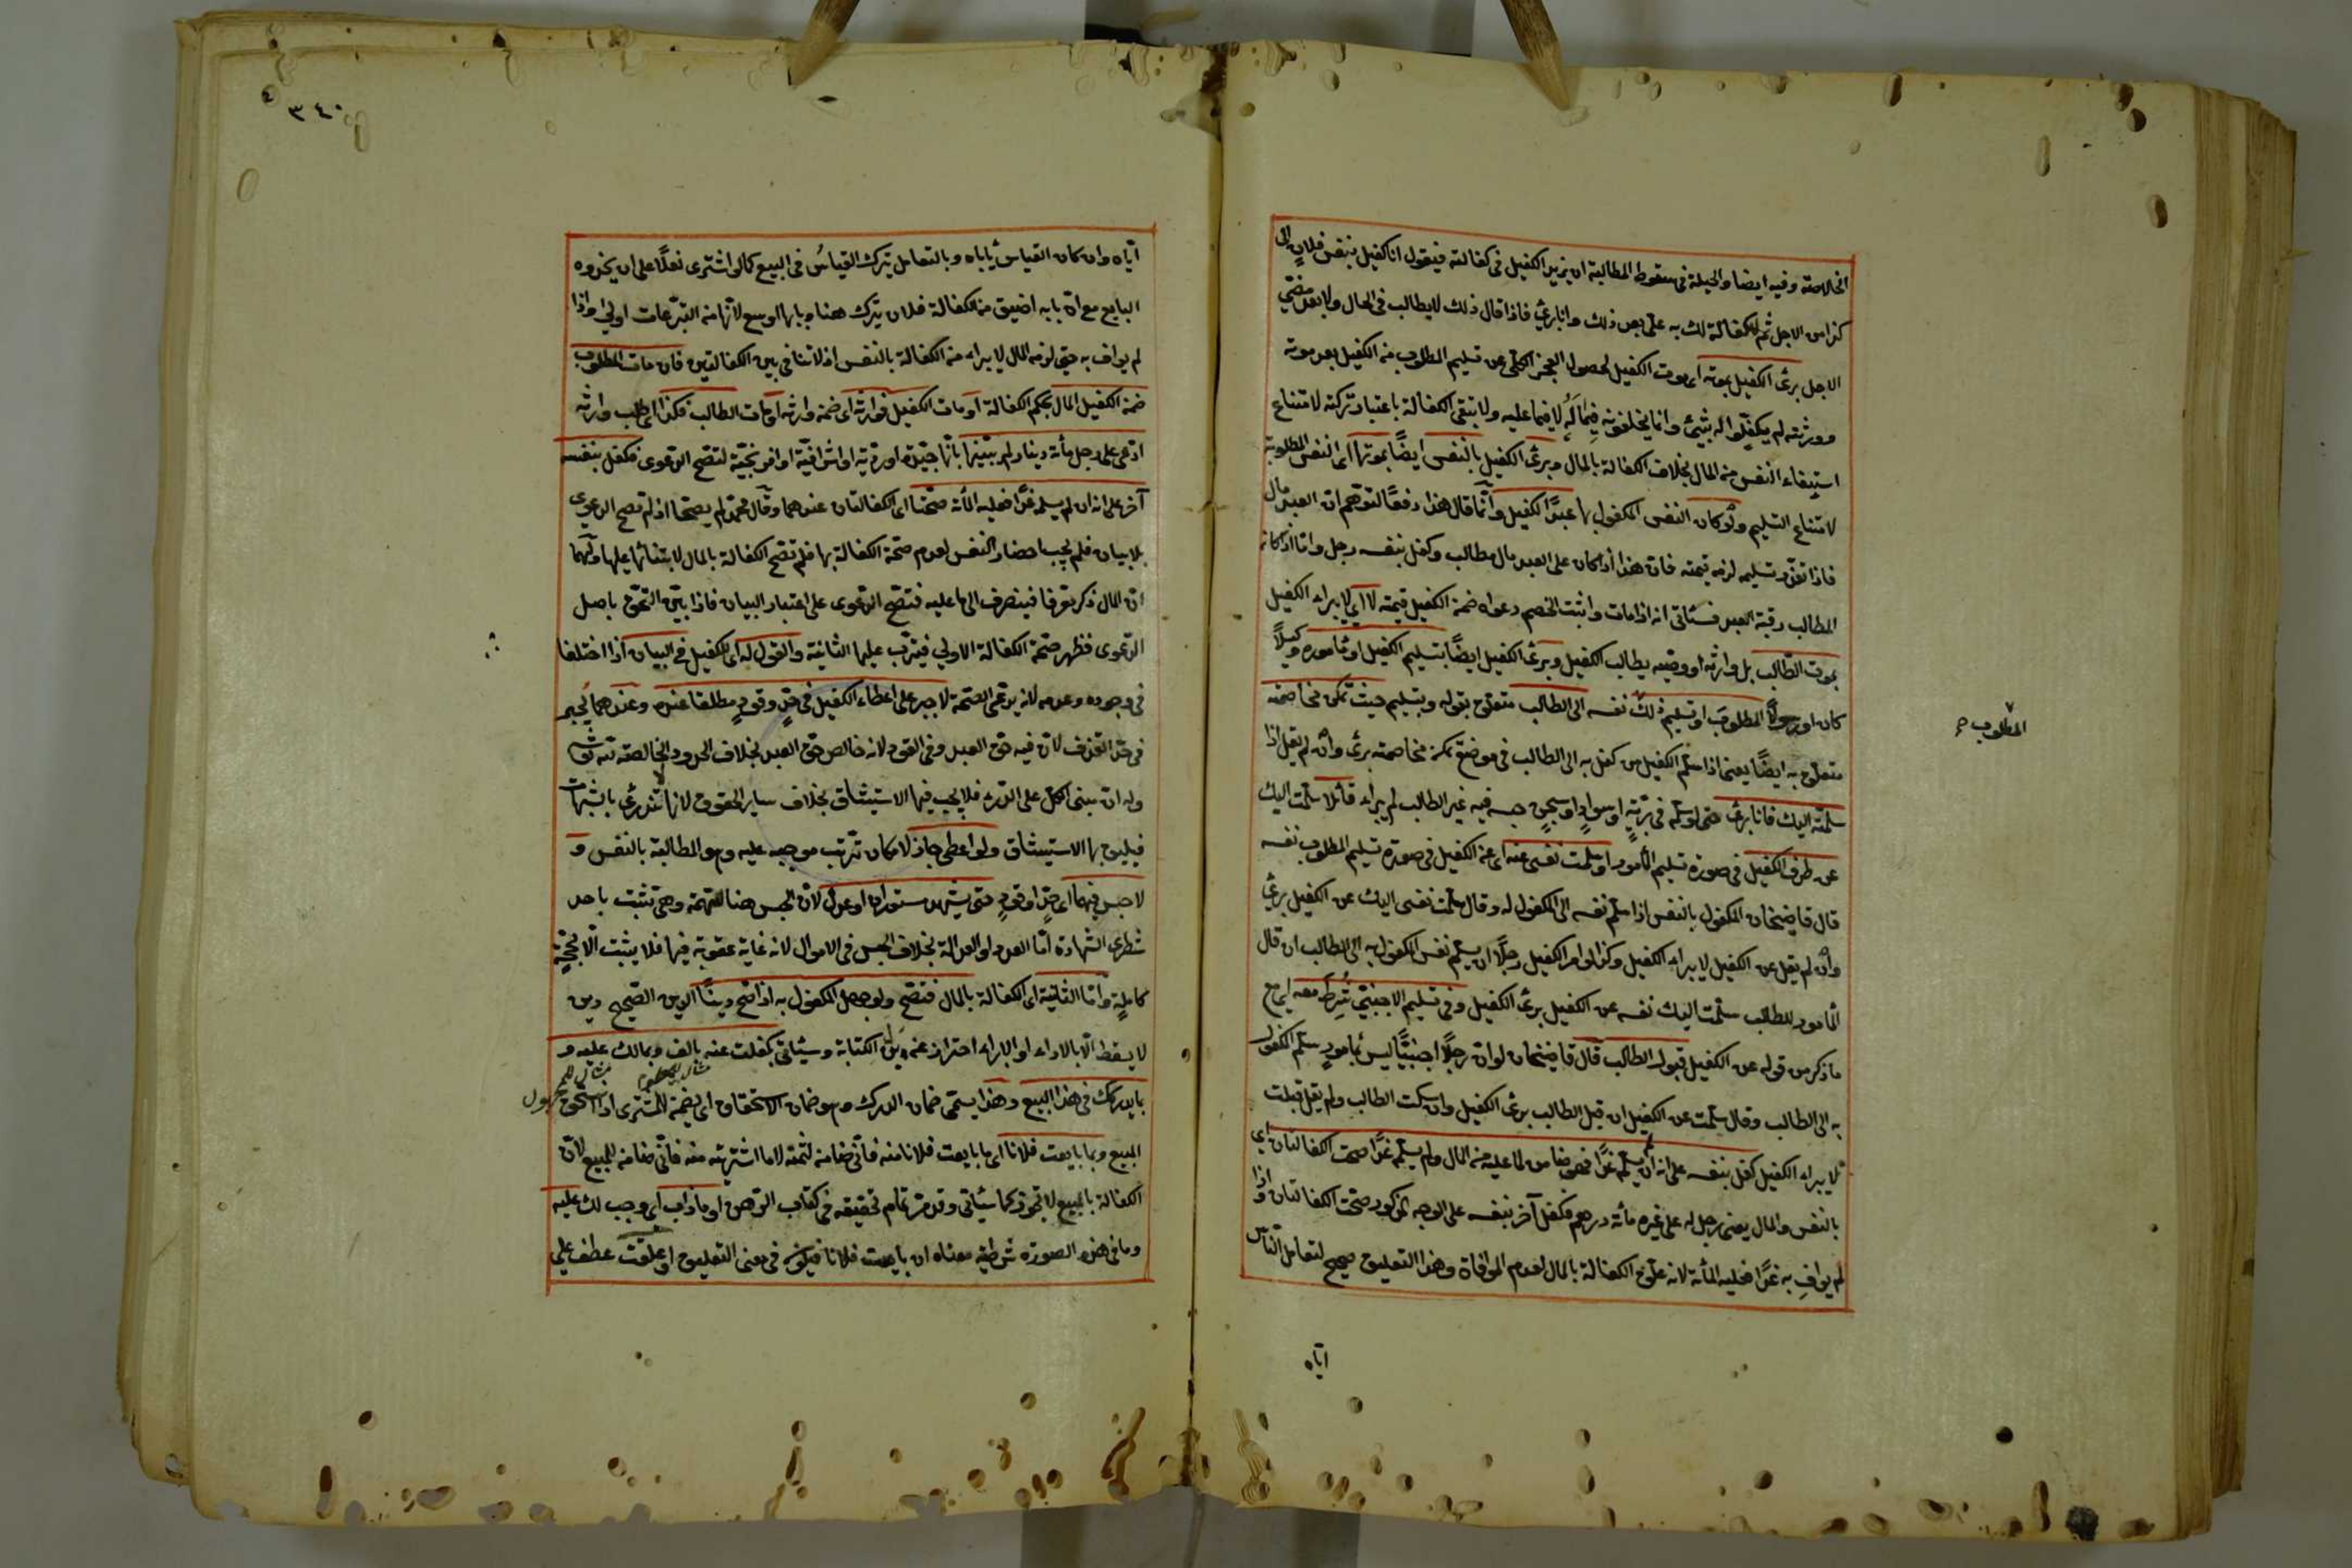 الخلاصة وفيه ايضا والحيلة في سقوط المطالبة ان يزيد الكفيل في كفالته فيقول انا كفيل بنفس فلان الى
كذا من الاجل ثم لا كفالة لك به علي بعد ذلك وانا بارئ فاذا قال ذلك لا يطالب في الحال ولا بعد مضي
الاجل برئ الكفيل بموته اى موت الكفيل لحصول العجز الكلي عن تسليم المطلوب من الكفيل بعد موته
وورثته لم يكفلوا له بشيئ وانما يخلفونه فيما له لا فيما عليه ولا تبقى الكفالة باعتبار تركته لامتناع
استيفاء النفس من المال بخلاف الكفالة بالمال وبرئ الكفيل بالنفس ايضا بموتها اى النفس المطلوبة
لامتناع التسليم ولو كان النفس المكفول بها عبدا الكفيل وانما قال هذا دفعا لتوهم ان العبد مال
فاذا تعذر تسليمه لزمه قيمته فان هذا اذا كان على العبد مال مطالب وكفل بنفسه رجل واما اذا كان
المطالب رقبة العبد فسيأتي انه اذا مات واثبت الخصم دعواه ضمن الكفيل قيمته لا اى لا يبراء الكفيل
بموت الطالب بل وارثه او وصيه يطالب الكفيل وبرئ الكفيل ايضا بتسليم الكفيل او مأموره وكيلا
كان او رسولا المطلوب او تسليم ذلك نفسه الى الطالب متعلق بقوله وبتسليم حيث تمكن مخاصمته
المطلوب صح
متعلق به ايضا يعنى اذا سلم الكفيل من كفل به الى الطالب في موضع يمكن مخاصمته برئ وان لم يقل اذا
سلمته اليك فانا برئ حتى لو سلم في برية او سواد او سجن حبسه فيه غير الطالب لم يبراء قائلا سلمت اليك
عن طرف الكفيل في صورة تسليم المأمور او سلمت نفسى عنه اى عن الكفيل في صورة تسليم المطلوب نفسه
قال قاضيخان المكفول بالنفس اذا سلم نفسه الى المكفول له وقال سلمت نفسى اليك عن الكفيل برئ
وان لم يقل عن الكفيل لا يبراء الكفيل وكذا لو امر الكفيل رجلا ان يسلم نفس المكفول به الى الطالب ان قال
المأمور للطالب سلمت اليك نفسه عن الكفيل برئ الكفيل وفي تسليم الاجنبي شرط معه اى مع
ما ذكر من قوله عن الكفيل قبول الطالب قال قاضيخان لو ان رجلا اجنبيا ليس بمأمور سلم المكفول
به الى الطالب وقال سلمت عن الكفيل ان قبل الطالب برئ الكفيل وان سكت الطالب ولم يقل قبلت
لا يبراء الكفيل كفل بنفسه على انه ان لم يسلم غدا فهو ضامن لما عليه من المال ولم يسلم غدا صحت الكفالتان اى
بالنفس والمال يعنى رجل له على غيره مأة درهم فكفل آخر بنفسه على الوجه المذكور صحت الكفالتان واذا
لم يواف به غدا فعليه المأة لانه علق الكفالة بالمال لعدم الموافاة وهذا التعليق صحيح لتعامل الناس
اياه
٣٤٠
اياه وان كان القياس يأباه وبالتعامل يترك القياس في البيع كما لو اشترى نعلا على ان يحذوه
البايع مع ان بابه اضيق من الكفالة فلان يترك هنا وبابها اوسع لانها من التبرعات اولى واذا
لم يواف به حتى لزمه المال لا يبراء من الكفالة بالنفس اذ لا تنافي بين الكفالتين فان مات المطلوب
ضمن الكفيل المال بحكم الكفالة او مات الكفيل فوارثه اى ضمن وارثه او مات الطالب فكذا اى طلب وارثه
ادعى على رجل مأة دينار ولم يبينها بانها جيدة او ردية او اشرافية او افرنجية لتصح الدعوى فكفل بنفسه
آخر على انه ان لم يسلمه غدا فعليه المأة صحتا اى الكفالتان عندهما وقال محمد لم يصحا اذ لم تصح الدعوى
بلا بيان فلم يجب احضار النفس لعدم صحة الكفالة بها فلم تصح الكفالة بالمال لابتنائها عليها ولهما
ان المال ذكر معرفا فينصرف الى ما عليه فتصح الدعوى على اعتبار البيان فاذا بين التحق باصل
الدعوى فظهر صحة الكفالة الاولى فيترتب عليها الثانية والقول له اى للكفيل في البيان اذا اختلفا
في وجوده وعدمه لانه يدعى الصحة لا جبر على اعطاء الكفيل في حد وقود مطلقا عنده وعندهما يجبر
في حد القذف لان فيه حق العبد وفي القود لانه خالص حق العبد بخلاف الحدود الخالصة لله تعالى
وله ان مبنى الكل على الدرء فلا يجب فيها الاستيثاق بخلاف ساير الحقوق لانها لا تندرئ بالشبهات
فيليق بها الاستيثاق ولو اعطى جاز لامكان ترتب موجبه عليه وهو المطالبة بالنفس و
لا حبس فيهما اى حد او قود حتى يشهد مستوران او عدل لان الحبس هنا للتهمة وهى تثبت باحد
شطرى الشهادة اما العدد او العدالة بخلاف الحبس في الاموال لانه غاية عقوبة فيها فلا يثبت الا بحجة
كاملة واما الثانية اى الكفالة بالمال فتصح ولو جهل المكفول به اذا صح دينا الدين الصحيح دين
لا يسقط الا بالاداء او الابراء احتراز عن بدل الكتابة وسيأتي بكفلت عنه بالف وبمالك عليه و
بما يدركك في هذا البيع وهذا يسمى ضمان الدرك وهو ضمان الاستحقاق اى يضمن للمشترى اذا استحق
المبيع وبما بايعت فلانا اى ما بايعت فلانا منه فاني ضامن لثمنه لا ما اشتريته منه فاني ضامن للمبيع لان
الكفالة بالمبيع لا تجوز كما سيأتي وقد مر تمام تحقيقه في كتاب الرهن او ما ذاب اى وجب لك عليه
وما في هذه الصورة شرطية معناه ان بايعت فلانا فيكون في معنى التعليق او علقت عطف على